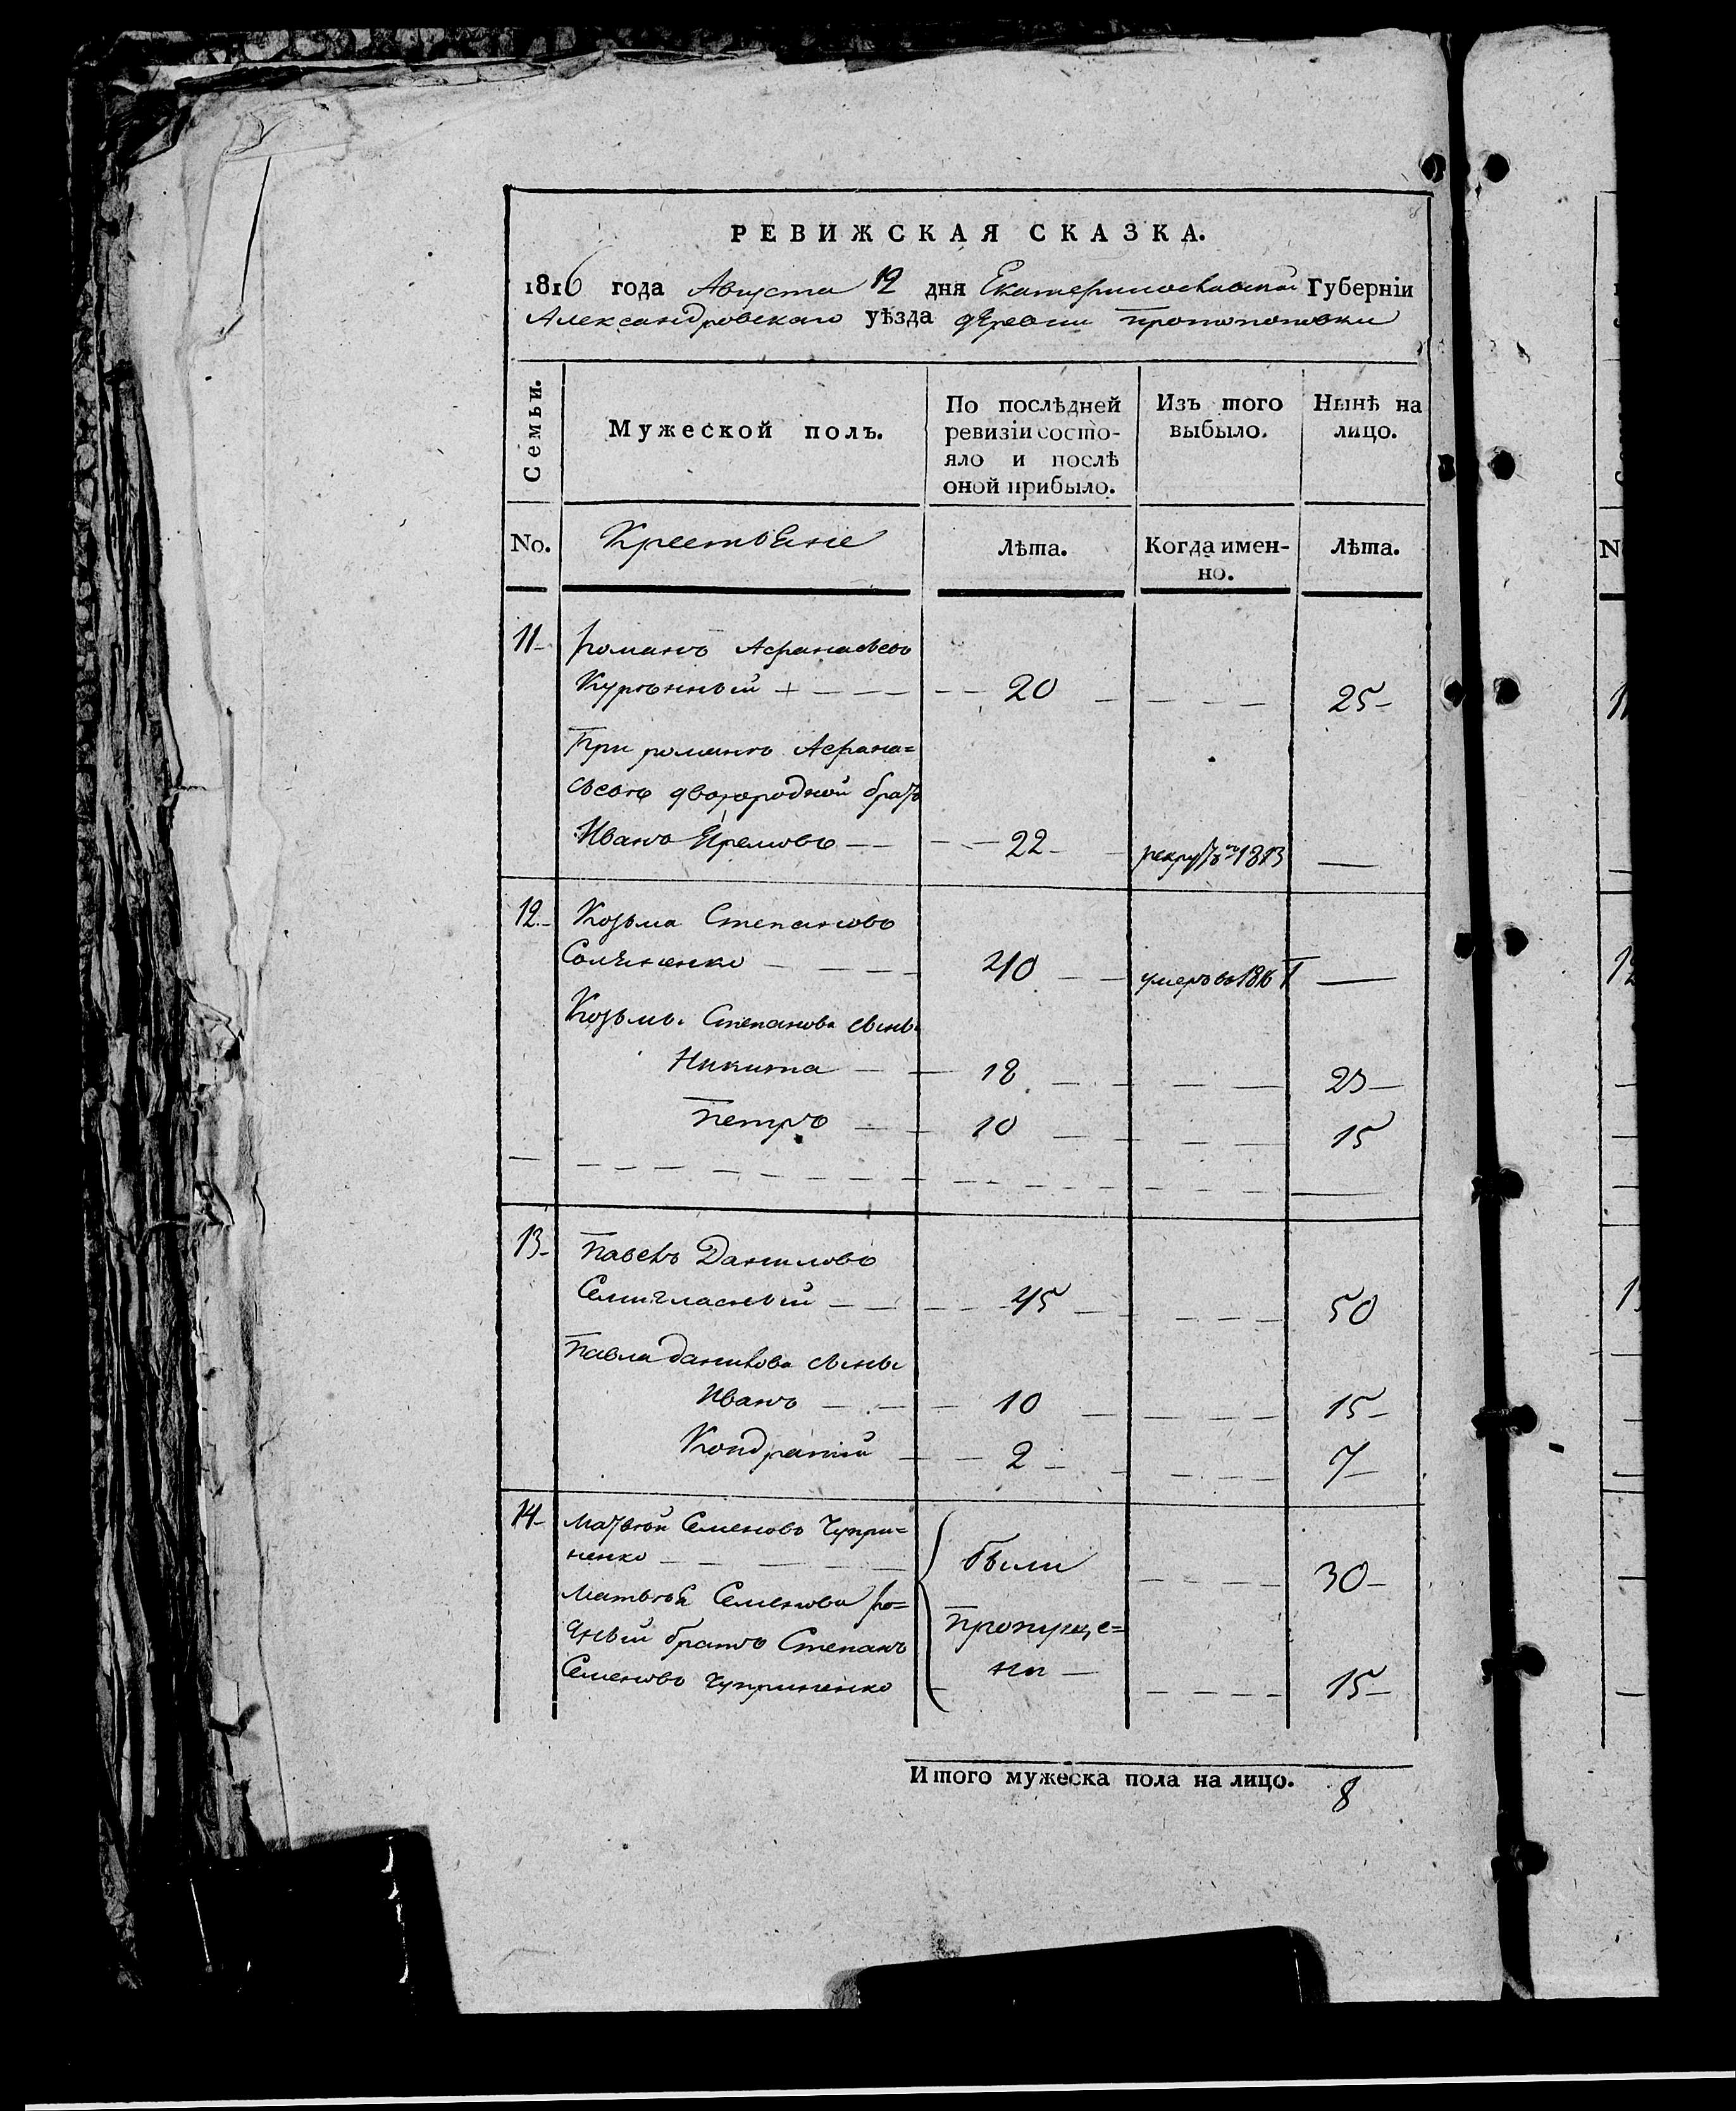 РЕВИЖСКАЯ СКАЗКА.
1816 года Августа 12 дня Екатеринославской Губерніи
Александровскаго уѣзда деревни Протопоповки
Семьи.
Мужеской полъ.
По послѣдней
ревизіи состо-
яло и послѣ
оной прибыло.
Изъ того
выбыло.
Нынѣ на
лицо.
No. Крестьяне Лѣта. Когда имен-
но. Лѣта.
11 Романъ Афанасьевъ
20 25
При романѣ Афана=
сьевѣ двоюродной братъ
Иванъ Ефремовъ 22 рекрутъ 1813
12 Козьма Степановъ
40 умеръ въ 1816
Козьмы Степанова сыны
Никита 18 23
Петръ 10 15
13 Павелъ Даниловъ
Семигласный 45 50
Павла данилова сыны
Иванъ 10 15
Кондратій 2 7
14 Матвей Семеновъ Чупри=
ненко были 30
Матвѣя Семенова ро=
дный братъ Степанъ пропуще=
ни
Семеновъ Чуприненко 15
Итого мужеска пола на лицо. 8
N